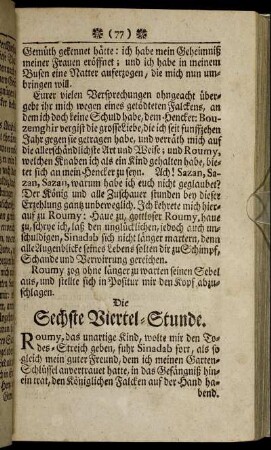 (77)
Gemüth gekennet hätte: ich habe mein Geheimniß
meiner Frauen eröffnet; und ich habe in meinem
Busen eine Natter auferzogen, die mich nun um-
bringen will.
Eurer vielen Versprechungen ohngeacht über-
gebt ihr mich wegen eines getödteten Falckens, an
dem ich doch keine Schuld habe, dem Hencker: Bou-
zemghir vergist die grosse Liebe, die ich seit funffzehen
Jahr gegen sie getragen habe, und verräth mich auf
die allerschändlichste Art und Weise; und Roumy,
welchen Knaben ich als ein Kind gehalten habe, bie-
tet sich an mein Hencker zu seyn. Ach! Sazan, Sa-
zan, Sazan, warum habe ich euch nicht geglaubet?
Der König und alle Zuschauer stunden bey dieser
Erzehlung gantz unbeweglich. Ich kehrete mich hier-
auf zu Roumy: Haue zu, gottloser Roumy, haue
zu, schrye ich, laß den unglücklichen, jedoch auch un-
schuldigen, Sinadab sich nicht länger martern, denn
alle Augenblicke seines Lebens sollen dir zu Schimpf,
Schande und Verwirrung gereichen.
Roumy zog ohne länger zu warten seinen Sebel
aus, und stellte sich in Positur mir den Kopf abzu-
schlagen.
Die
Sechste Viertel-Stunde.
Roumy, das unartige Kind, wolte mir den To-
des-Streich geben, fuhr Sinadab fort, als so-
gleich mein guter Freund, dem ich meinen Garten-
Schlüssel anvertrauet hatte, in das Gefängniß hin-
ein trat, den Königlichen Falcken auf der Hand ha-
bend.